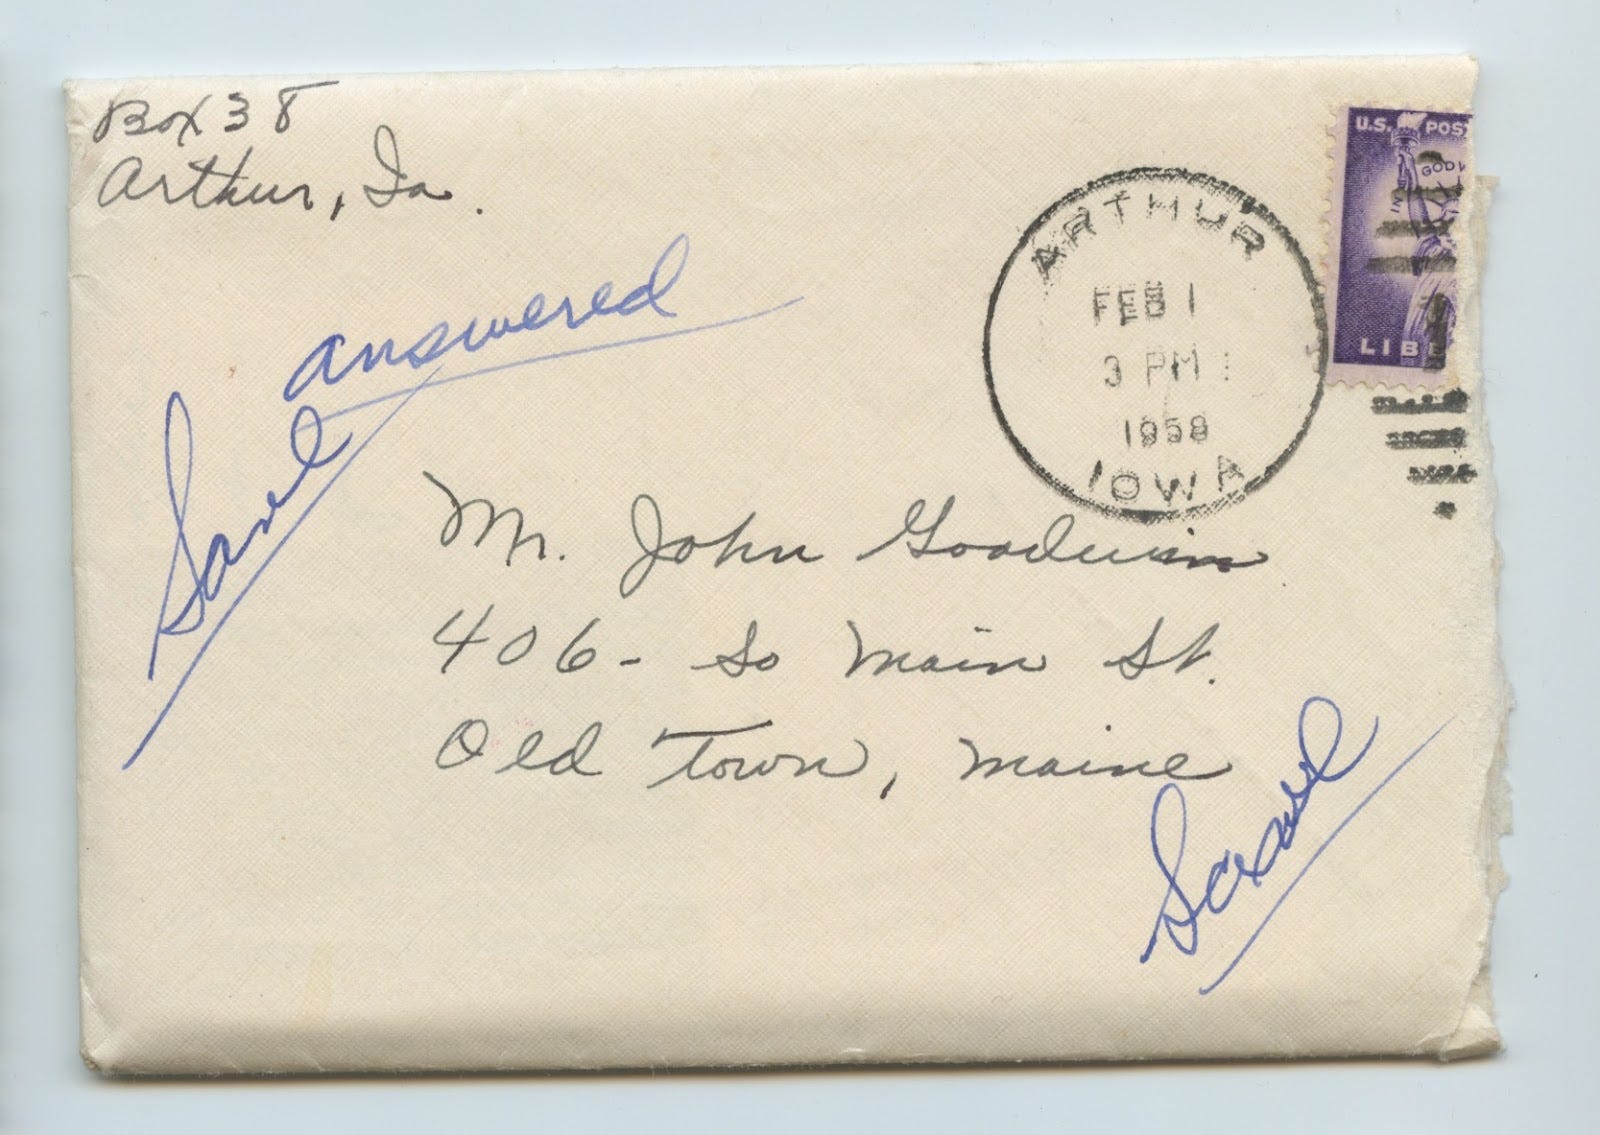 Box 38
Arthur, Ia.
answered
Save
U.S. POS
GOD
LIB
ARTHUR
FEB 1
3 PM
1958
IOWA
Mr. John Goodwin
406- So Main St.
Old Town, Maine
Save